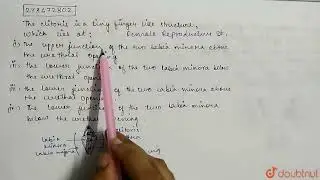 278472802
The clitoris is a tiny finger like structure,
which lies at: Female Reproductive St.
i) The upper junction of the two labia minora above
the urethral opening
ii) the lower junction of the two labia minora below
the urethral opening
iii) the lower junction of the two labia minora
above the urethral opening
iv) The lower junction of the two labia minora
below the urethral opening
clitoris
labia
minora
labia majora
doubtnut